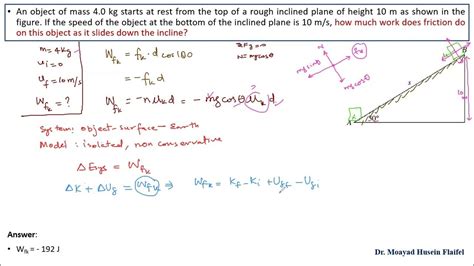 • An object of mass 4.0 kg starts at rest from the top of a rough inclined plane of height 10 m as shown in the
figure. If the speed of the object at the bottom of the inclined plane is 10 m/s, how much work does friction do
on this object as it slides down the incline?
m=4kg
u_i=0
u_f=10m/s
W_fk=?
W_fk = f_k.d cos180
= -f_k d
W_fk = -nμ_k d = -mg cosθ μ_k d
ΣF_y=0
n=mg cosθ
mg
10
System: object-surface-Earth
Model: isolated, non conservative
ΔE_sys = W_fk
ΔK + ΔU_g = W_fk ⇒ W_fk = K_f - K_i + U_gf - U_gi
Answer:
• W_fk = - 192 J
Dr. Moayad Husein Flaifel